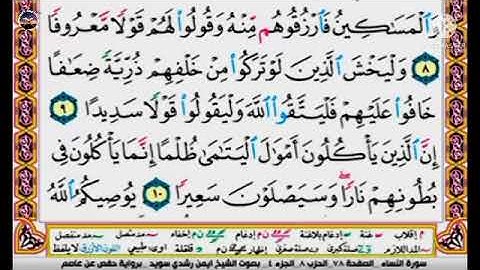 وَٱلْمَسَٰكِينُ فَٱرْزُقُوهُم مِّنْهُ وَقُولُوا۟ لَهُمْ قَوْلًا مَّعْرُوفًا
٨ وَلْيَخْشَ ٱلَّذِينَ لَوْ تَرَكُوا۟ مِنْ خَلْفِهِمْ ذُرِّيَّةً ضِعَٰفًا
خَافُوا۟ عَلَيْهِمْ فَلْيَتَّقُوا۟ ٱللَّهَ وَلْيَقُولُوا۟ قَوْلًا سَدِيدًا ٩
إِنَّ ٱلَّذِينَ يَأْكُلُونَ أَمْوَٰلَ ٱلْيَتَٰمَىٰ ظُلْمًا إِنَّمَا يَأْكُلُونَ فِى
بُطُونِهِمْ نَارًا وَسَيَصْلَوْنَ سَعِيرًا ١٠ يُوصِيكُمُ ٱللَّهُ
سورة النساء . الصفحة ٧٨ الحزب ٨ الجزء ٤ . بصوت الشيخ ايمن رشدي سويد . برواية حفص عن عاصم